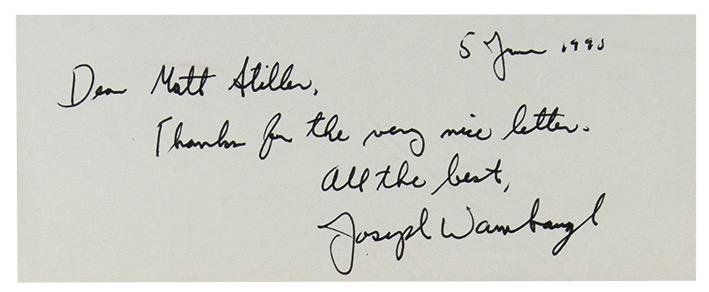 5 June 1990
Dear Matt Stiller,
Thanks for the very nice letter.
All the best,
Joseph Wambaugh